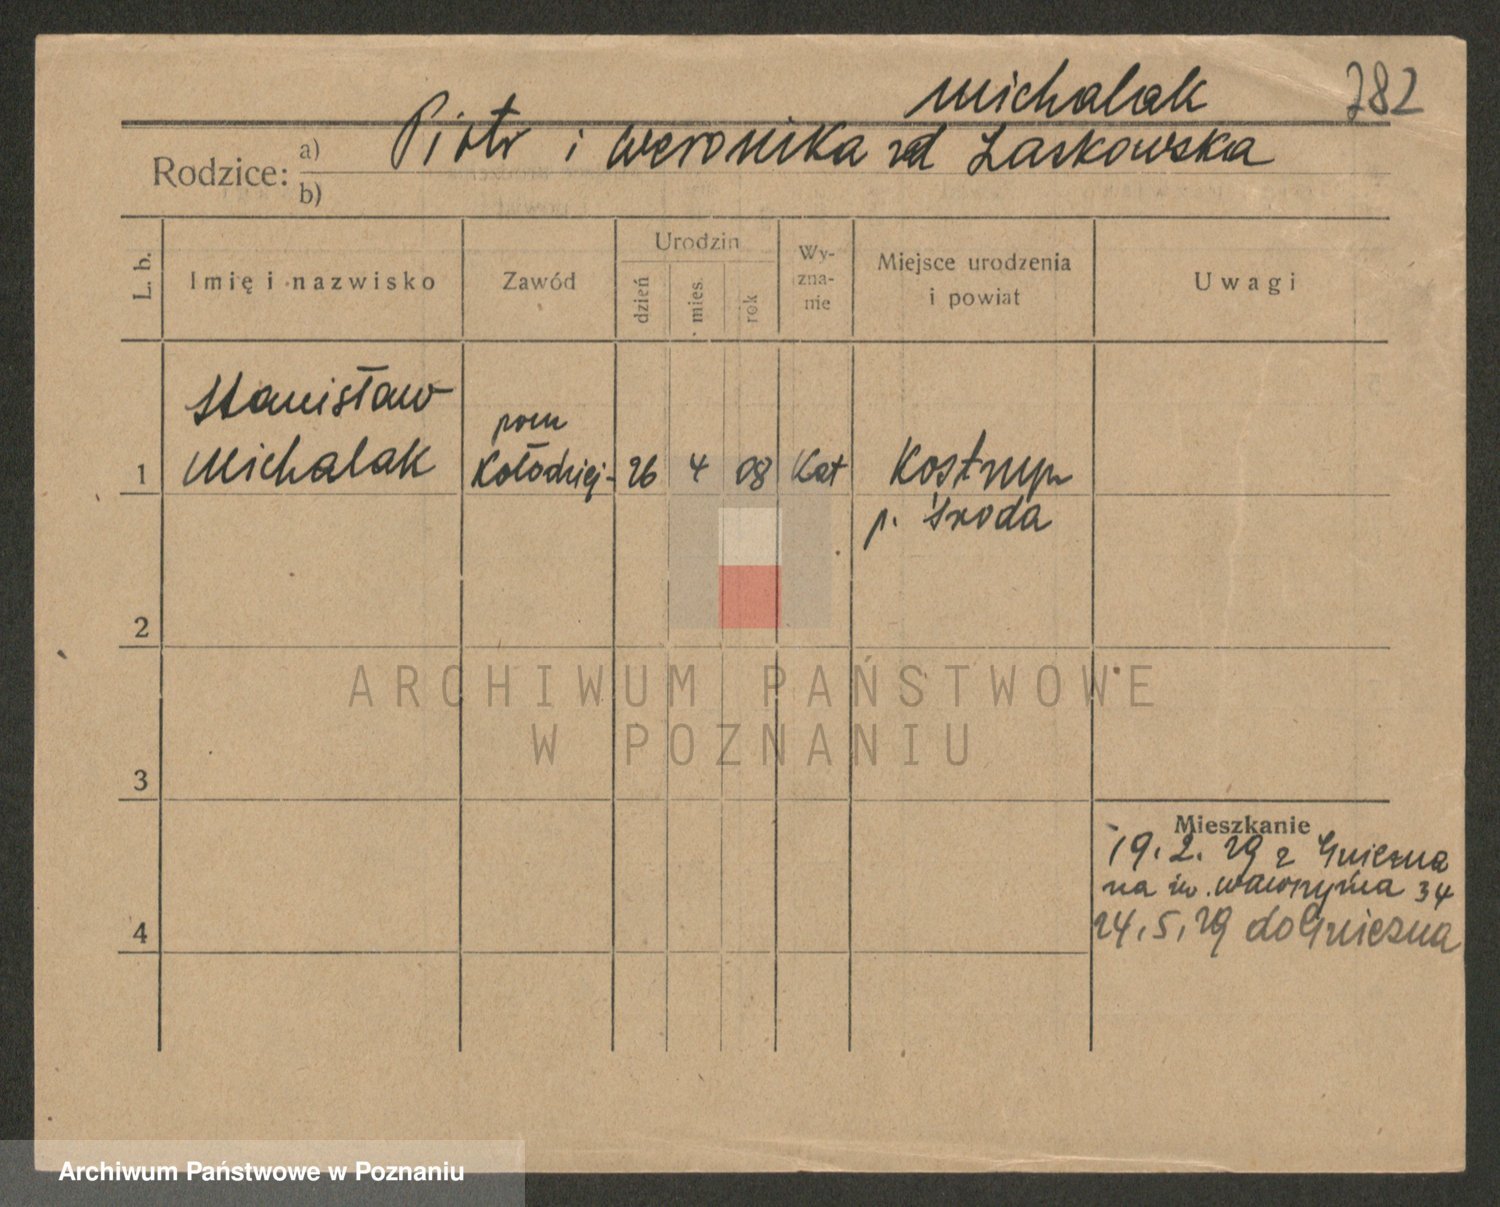 Michalak 782
Piotr i Weronika zd Laskowska
Rodzice: a)
b)
L. b.
Imię i nazwisko
Zawód
Urodzin
dzień
mies.
rok
Wy-
zna-
nie
Miejsce urodzenia
i powiat
Uwagi
Stanisław
Michalak
pom
Kołodziej-
1
26 4 08 Kat
Kostrzyn
p. Środa
2
ARCHIWUM PAŃSTWOWE
W POZNANIU
3
Mieszkanie
19.2.29 z Gniezna
na św. Wawrzyńca 34
24.5.29 do Gniezna
4
Archiwum Państwowe w Poznaniu